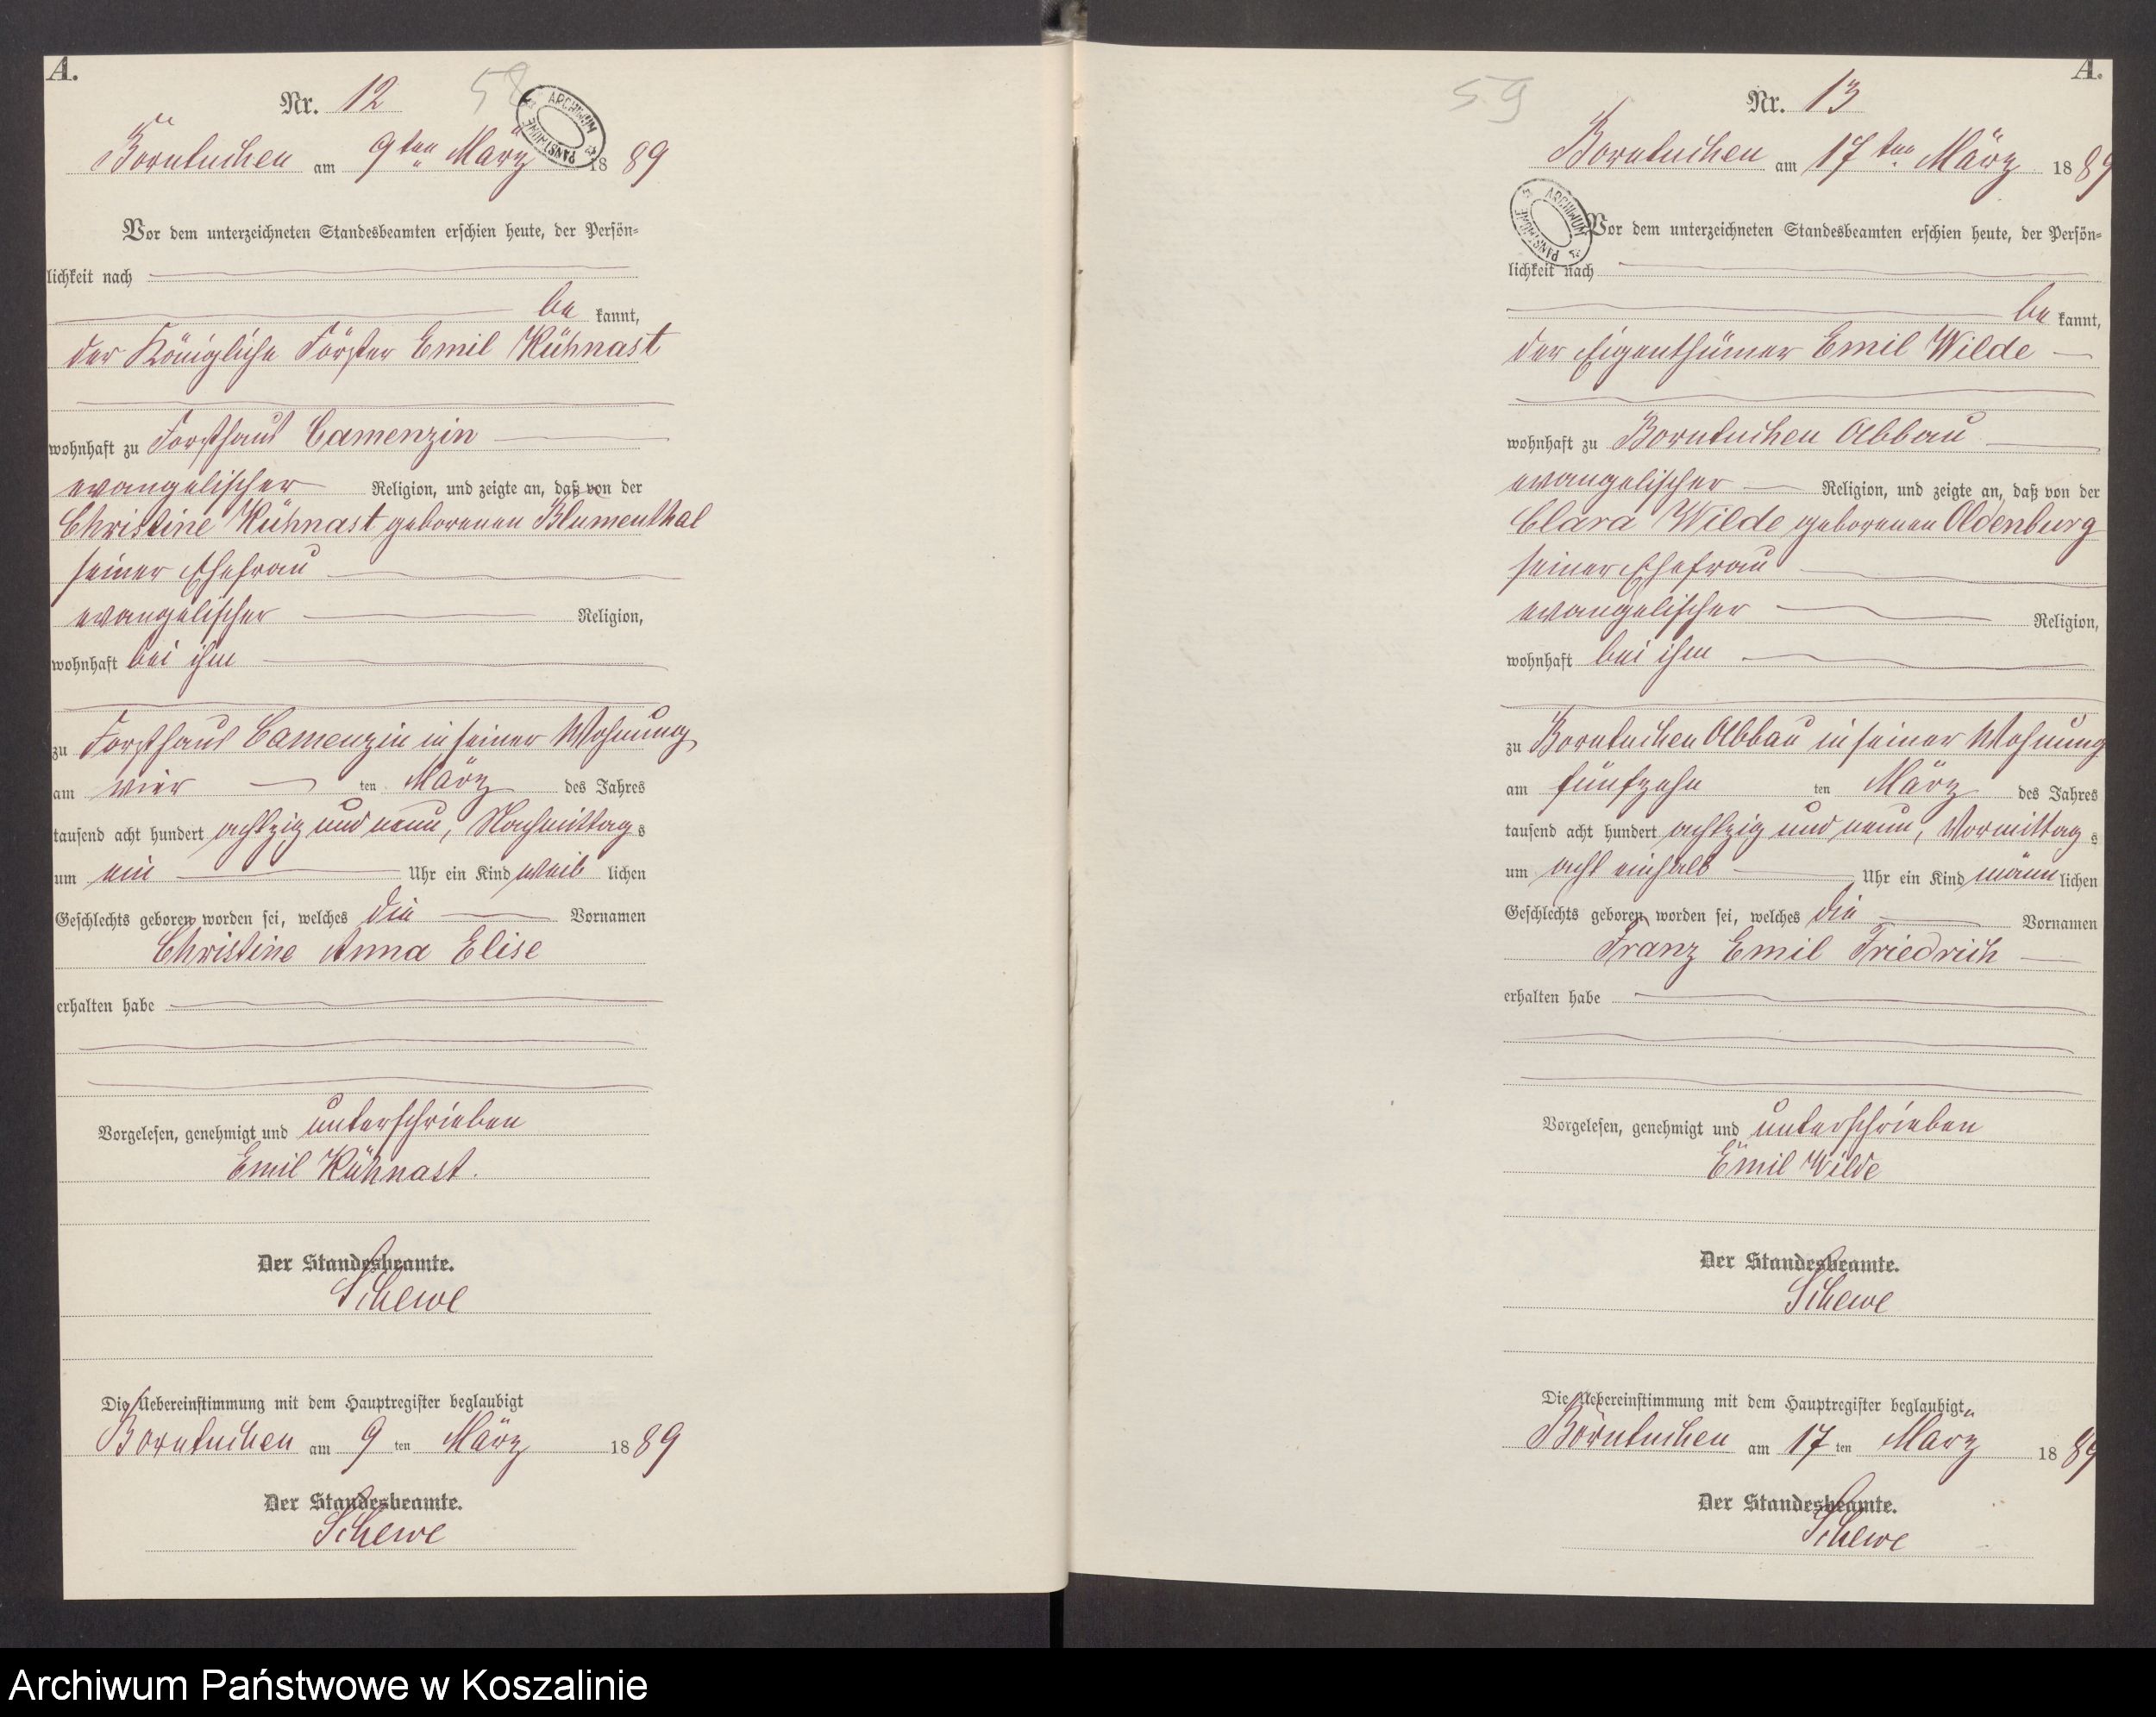 A.
Nr. 12
58
ARCHIWUM PAŃSTWOWE
Borntuchen am 9ten März 1889
Vor dem unterzeichneten Standesbeamten erschien heute, der Persön-
lichkeit nach
be kannt,
der Königliche Förster Emil Kühnast
wohnhaft zu Forsthaus Camenzin
evangelischer Religion, und zeigte an, daß von der
Christine Kühnast geborenen Blumenthal
seiner Ehefrau
evangelischer Religion,
wohnhaft bei ihm
zu Forsthaus Camenzin in seiner Wohnung
am vier ten März des Jahres
tausend acht hundert achtzig und neun, Nachmittags
um ein Uhr ein Kind weib lichen
Geschlechts geboren worden sei, welches die Vornamen
Christine Anna Elise
erhalten habe
Vorgelesen, genehmigt und unterschrieben
Emil Kühnast.
Der Standesbeamte.
Schewe
Die Uebereinstimmung mit dem Hauptregister beglaubigt
Borntuchen am 9 ten März 1889
Der Standesbeamte.
Schewe
A.
59
Nr. 13
Borntuchen am 17ten März 1889
ARCHIWUM PAŃSTWOWE
Vor dem unterzeichneten Standesbeamten erschien heute, der Persön-
lichkeit nach
be kannt,
der Eigenthümer Emil Wilde
wohnhaft zu Borntuchen Abbau
evangelischer Religion, und zeigte an, daß von der
Clara Wilde geborenen Oldenburg
seiner Ehefrau
evangelischer Religion,
wohnhaft bei ihm
zu Borntuchen Abbau in seiner Wohnung
am fünfzehn ten März des Jahres
tausend acht hundert achtzig und neun, Vormittags
um acht einhalb Uhr ein Kind männ lichen
Geschlechts geboren worden sei, welches die Vornamen
Franz Emil Friedrich
erhalten habe
Vorgelesen, genehmigt und unterschrieben
Emil Wilde
Der Standesbeamte.
Schewe
Die Uebereinstimmung mit dem Hauptregister beglaubigt
Borntuchen am 17 ten März 1889
Der Standesbeamte.
Schewe
Archiwum Państwowe w Koszalinie